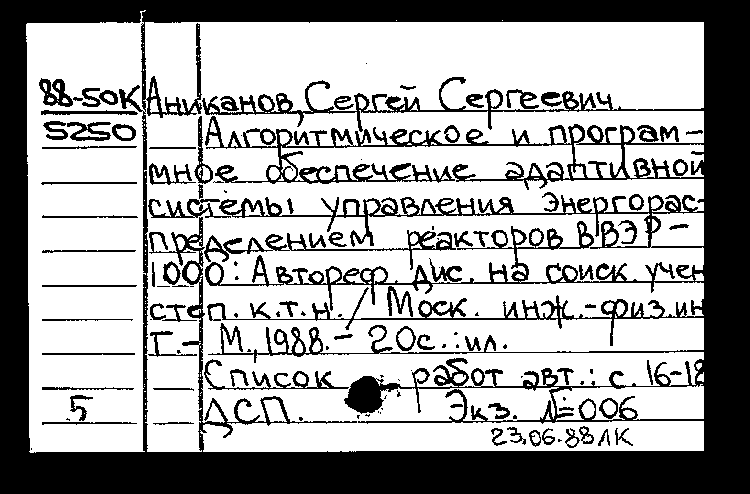 88-50К Аниканов, Сергей Сергеевич.
5250 Алгоритмическое и програм-
мное обеспечение адаптивной
системы управления энергорас-
пределением реакторов ВВЭР-
1000: Автореф. дис. на соиск. учен
степ. к.т.н. / Моск. инж.-физ. ин
т.- М., 1988.- 20с.: ил.
Список работ авт.: с. 16-18
5 ДСП. Экз. №006
23.06.88 ЛК